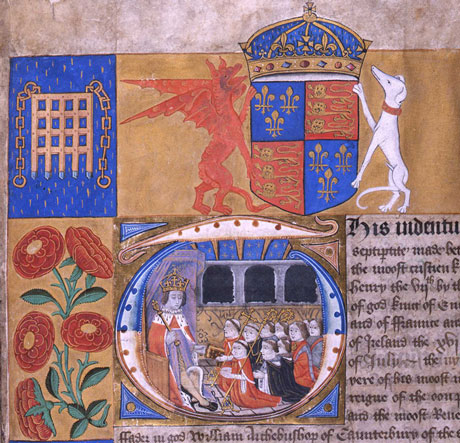 This indentu
septiptite made be
the moost cristen k
henry the vijth by th
of god king of En
and of ffraunce an
of Ireland the xvj
of Julij the ny
yere of his moost n
reigne of the oon p
and the moost Reue
ffader in god William Archebisshop of Caunterbury of the